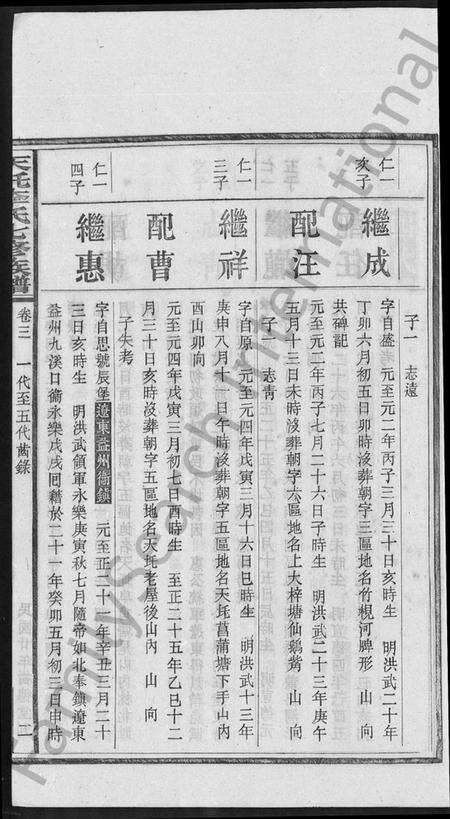 子一 志遠
仁一次子
繼成
字自盛 元至元二年丙子三月三十日亥時生 明洪武二十年
丁卯六月初五日卯時歿葬朝字三區地名竹梘河牌形 山 向
共碑記
配汪
元至元二年丙子七月二十六日子時生 明洪武二十三年庚午
五月十三日未時歿葬朝字六區地名上大梓塘仙鵞 山 向
子一 志青
仁一三子
繼祥
字自原 元至元四年戊寅三月十六日巳時生 明洪武十三年
庚申八月十一日午時歿葬朝字五區地名天坵菖蒲塘下手山內
酉山卯向
配曹
元至元四年戊寅三月初七日酉時生 至正二十五年乙巳十二
月三十日亥時歿葬朝字五區地名天坵老屋後山內 山 向
子失考
仁一四子
繼惠
字自思號辰堡遼東益州衛鎮 元至正二十一年辛丑三月二十
三日亥時生 明洪武領軍永樂庚寅秋七月隨帝如北奉鎮遼東
益州九溪口衛永樂戊戌回籍於二十一年癸卯五月初三日申時
氏七修族譜
卷三 一代至五代齒錄
二
FamilySearch International